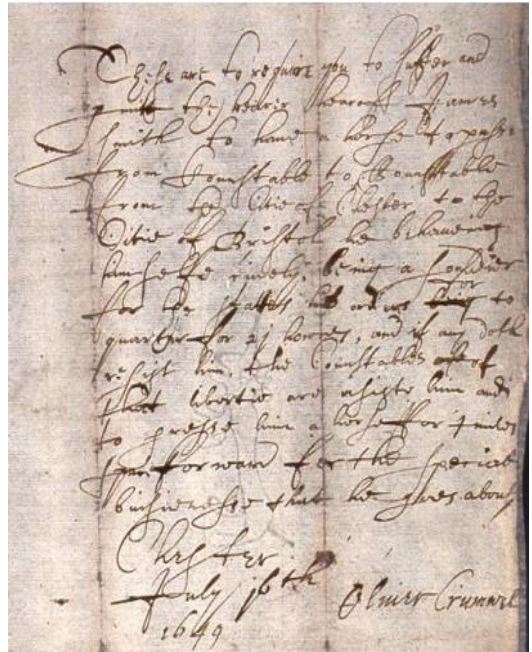 These are to require you to suffer and
the bearer hearof James
Smith to have a horse to passe
from Counstable to Counstable
from the Citie of Chester to the
Citie of Bristol he behaueing
himselfe cively, being a souldier
for the States his to
for
quarter for 24 howers, and if any doth
resist him, the Counstables of
that libertie are assiste him and
to presse him a horse for miles
forward for the speciall
buissenesse that he goes about
Chester
July 16th
1649
Oliver Crumwel